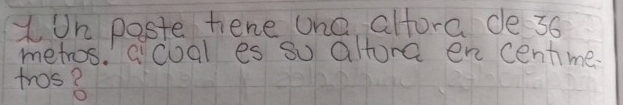 1 Un poste tiene una altora de 36
metros. a coal es su altora en centime-
tros?